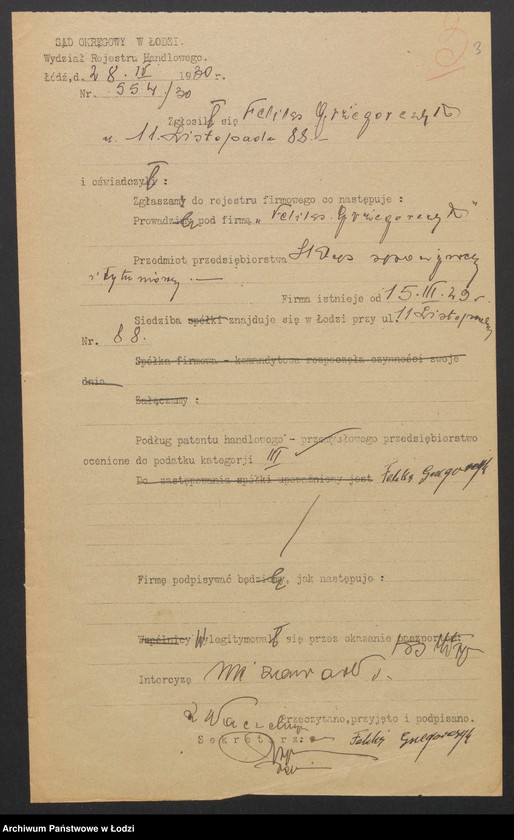 SĄD OKRĘGOWY W ŁODZI.
3
Wydział Rejestru Handlowego.
Łódź, d. 28. IV 1930 r.
Nr. 554/30
Zgłosił się Feliks Grzegorczyk
u. 11. Listopada 88.-
i oświadczył :
Zgłaszam do rejestru firmowego co następuje :
Prowadzę pod firmą „Feliks Grzegorczyk"
Przedmiot przedsiębiorstwa Sklep spożywczy
i tytoniowy.-
Firma istnieje od 15.III.29 r.
Siedziba spółki znajduje się w Łodzi przy ul. 11 Listopada
Nr. 88.
Spółka firmowa - komandytowa rozpoczęła czynności swoje
dnia
Załączamy :
Podług patentu handlowego - przemysłowego przedsiębiorstwo
ocenione do podatku kategorji III
Do zastępowania spółki upoważniony jest Feliks Grzegorczyk
Firmę podpisywać będę, jak następuje :
Wspólnicy Wylegitymował się przez okazanie paszportu
Intercyzę nie zawarł.
Przeczytano, przyjęto i podpisano.
Sekretarz: Feliks Grzegorczyk
Archiwum Państwowe w Łodzi